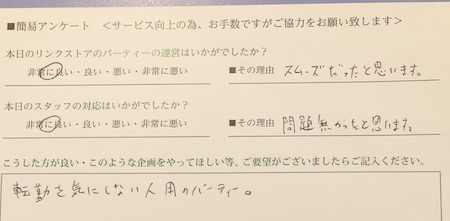 ■簡易アンケート ＜サービス向上の為、お手数ですがご協力をお願い致します＞
本日のリンクストアのパーティーの運営はいかがでしたか？
非常に良い・良い・悪い・非常に悪い ■その理由 スムーズだったと思います。
本日のスタッフの対応はいかがでしたか？
非常に良い・良い・悪い・非常に悪い ■その理由 問題無かったと思います。
こうした方が良い・このような企画をやってほしい等、ご要望がございましたらご記入ください。
転勤を気にしない人用のパーティー。